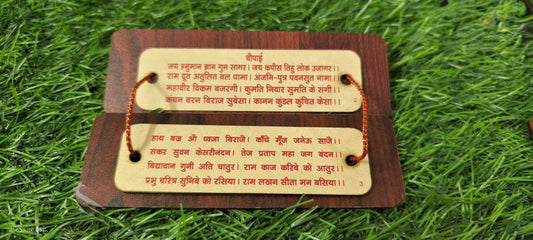 चौपाई
जय हनुमान ज्ञान गुन सागर। जय कपीस तिहु लोक उजागर।।
राम दूत अतुलित बल धामा। अंजनि-पुत्र पवनसुत नामा।
महावीर विक्रम बजरंगी। कुमति निवार सुमति के संगी।
कंचन बरन बिराज सुबेसा। कानन कुंडल कुंचित केसा।।
2
हाथ बज्र औ ध्वजा बिराजै। काँधे मूँज जनेऊ साजै।।
संकर सुवन केसरीनंदन। तेज प्रताप महा जग बंदन।।
बिद्यावान गुनी अति चातुर। राम काज करिबे को आतुर।।
प्रभु चरित्र सुनिबे को रसिया। राम लखन सीता मन बसिया।।
3